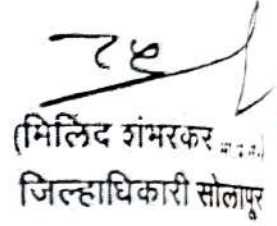 (मिलिंद शंभरकर भा.प्र.से.)
जिल्हाधिकारी सोलापूर